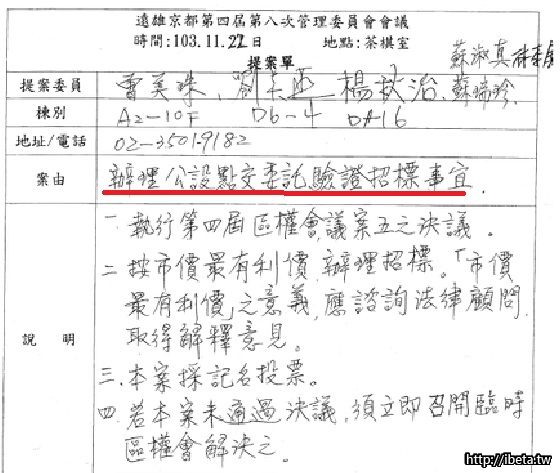 遠雄京都第四屆第八次管理委員會會議
時間:103.11.22日 地點:茶棋室
提案單
蘇淑真
提案委員 曹美珠、 楊啟治、蘇瑞玲
棟別 A2-10F D6-4 D2-16
地址/電話 02-3501-9182
案由 辦理公設點交委託驗證招標事宜.
說明
一.執行第四屆區權會議案五之決議。
二.按市價最有利價,辦理招標。「市價
最有利價」之意義,應諮詢法律顧問,
取得解釋意見。
三.本案採記名投票。
四.若本案未通過決議,須立即召開臨時
區權會解決之。
http://ibeta.tw